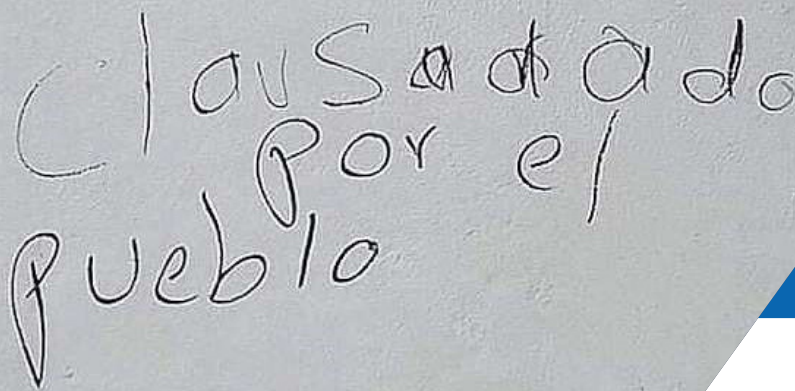 Clausadado
por el
pueblo